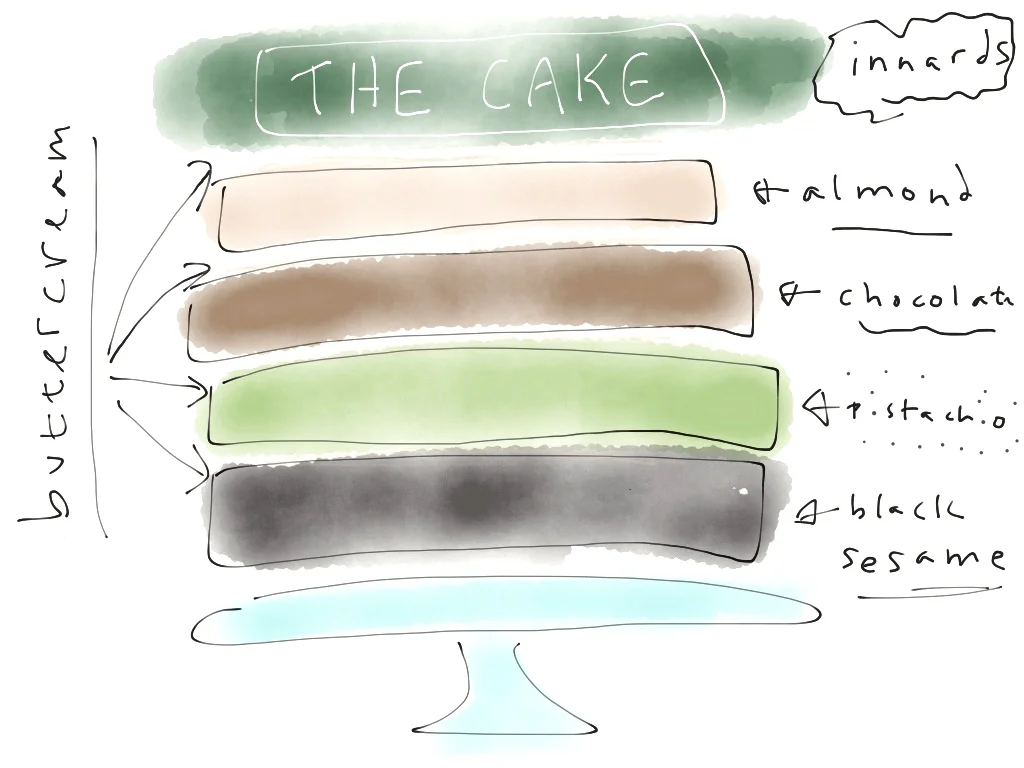 THE CAKE
innards
buttercream
almond
chocolate
pistachio
black
sesame